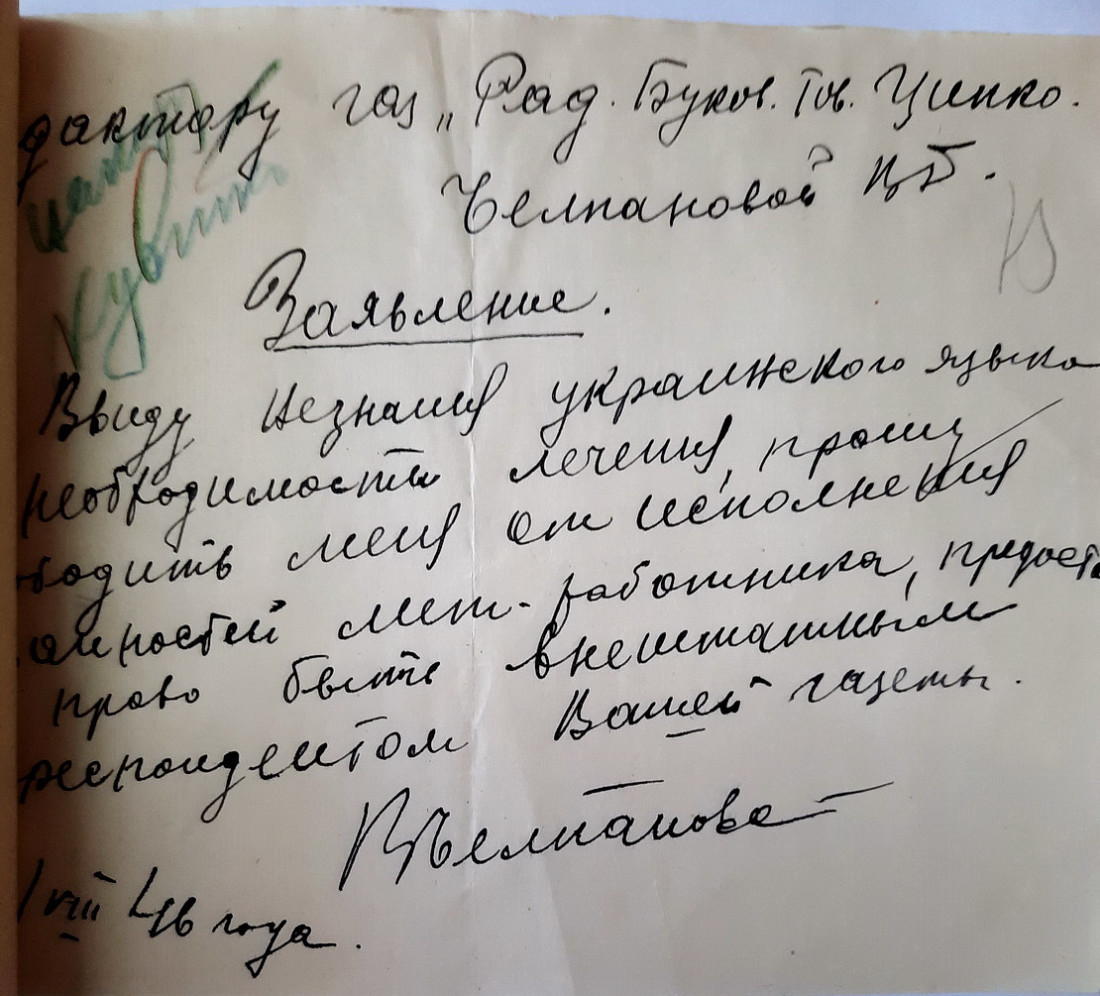 дактору газ „Рад. Буков. Тов. Ципко.
Челпановой
Заявление.
Ввиду незнания украинского языка
необходимости лечения, прошу
ободить меня от исполнения
анностей лит-работника, предоста
право быть внештатным
респондентом Вашей газеты.
Челпанова
1 VIII 46 года.